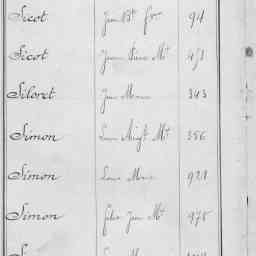 Sicot Jean Bte fs. 94
Sicot Jean Pierre Me 471
Siloret Jean Marie 343
Simon Louis Augte Me 356
Simon Louis Marie 921
Simon Félix Jean Me 978